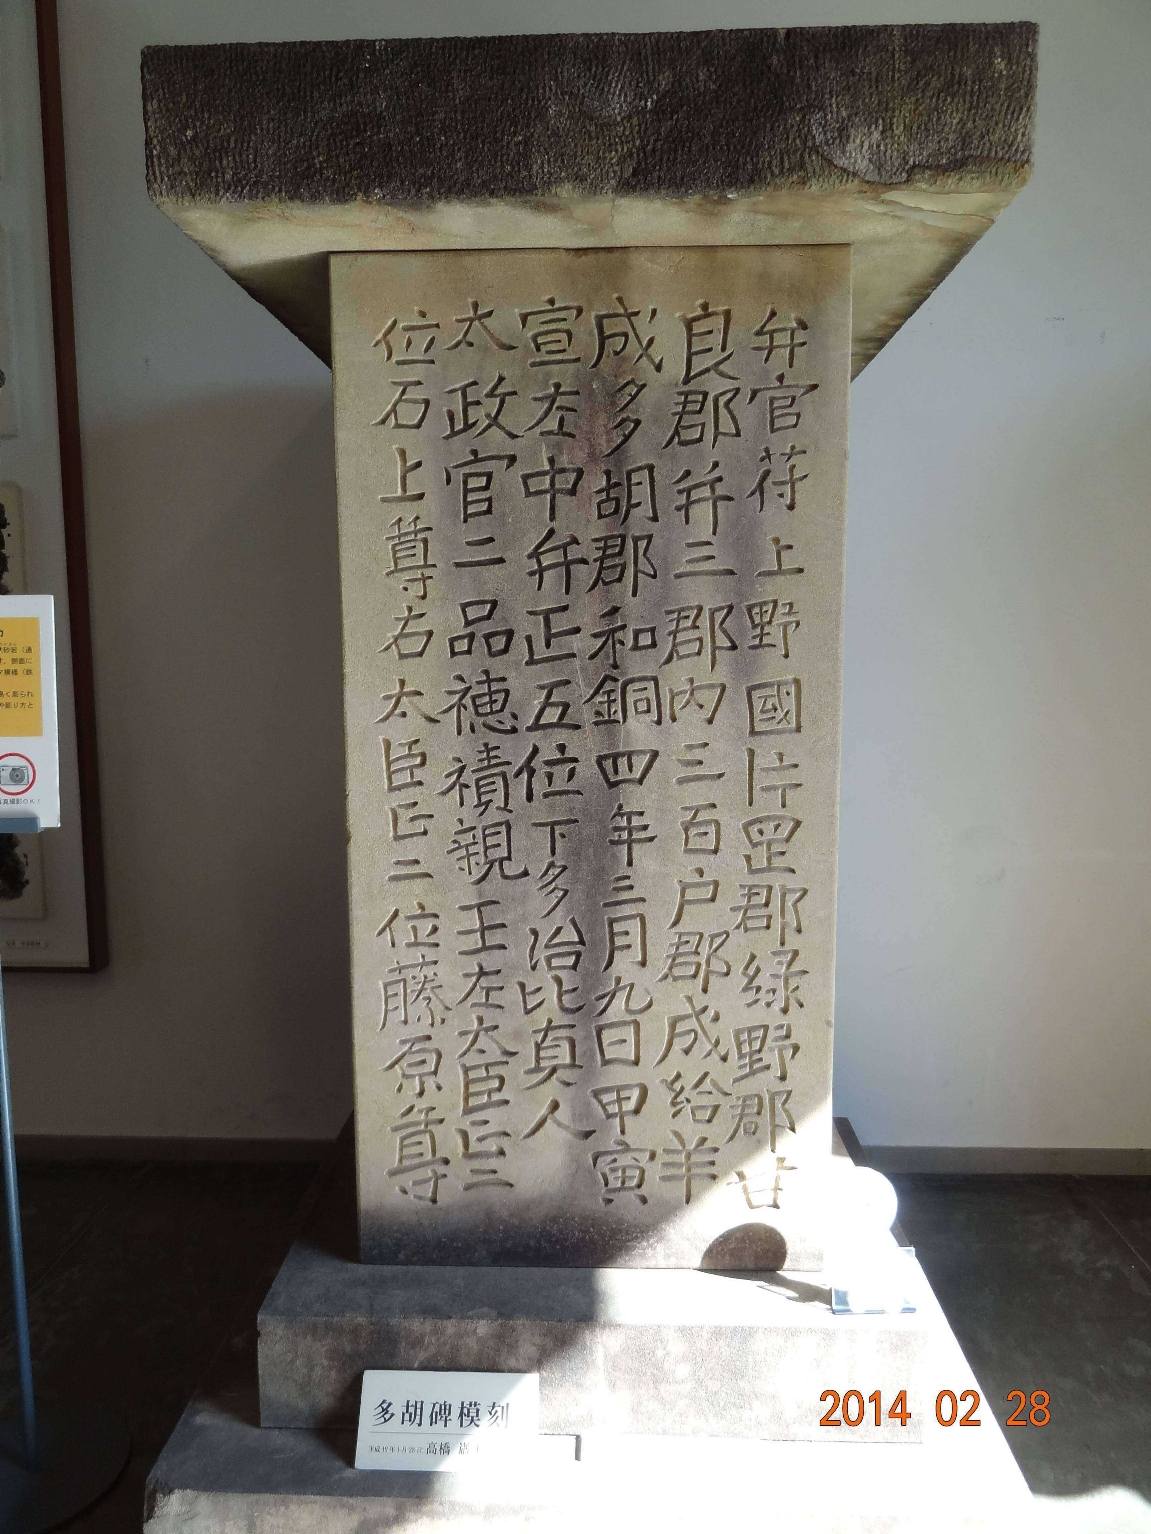 弁官苻上野國片罡郡緑野郡甘
良郡并三郡内三百户郡成給羊
成多胡郡和銅四年三月九日甲寅
宣左中弁正五位下多治比真人
太政官二品穂積親王左太臣正二
位石上尊右太臣正二位藤原尊
多胡碑模刻
高橋
真撮影OK!
2014 02 28